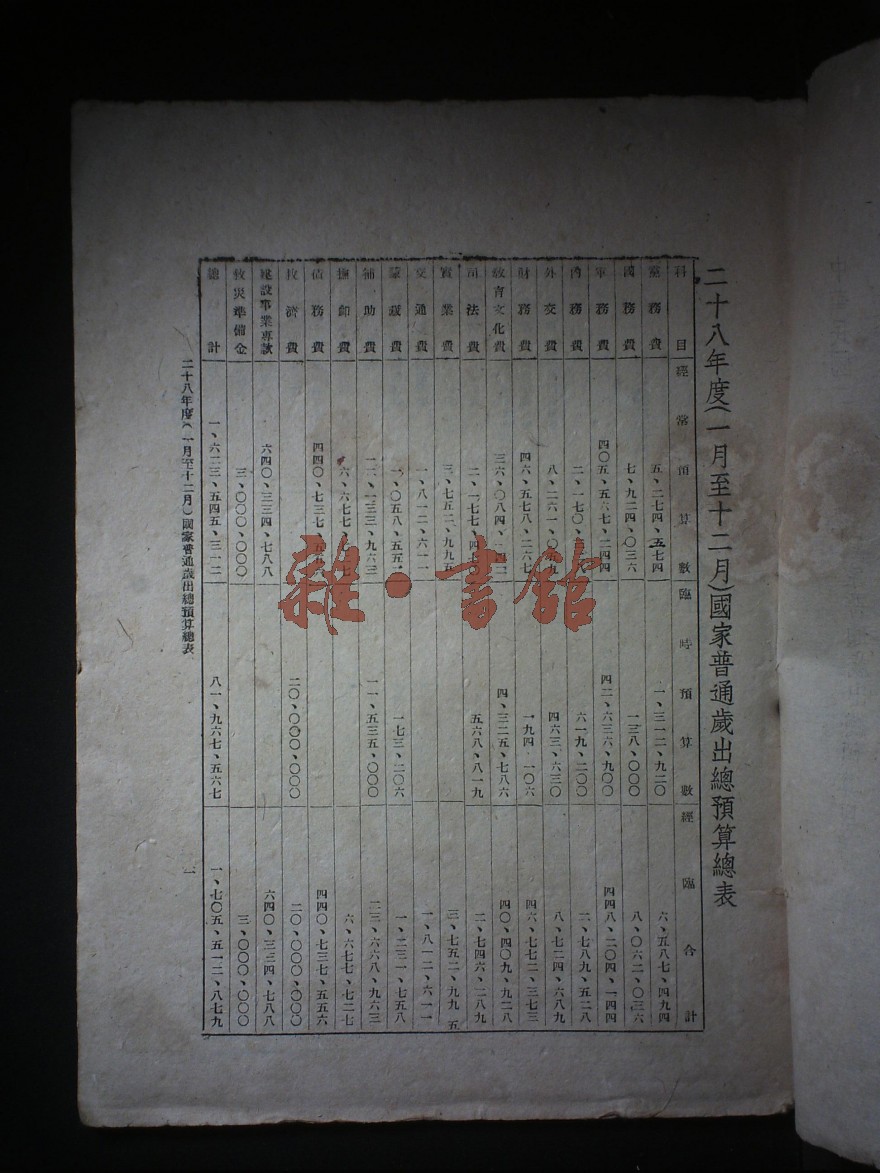 二十八年度(一月至十二月)國家普通歲出總預算總表
科目 經常預算數 臨時預算數 經臨合計
黨務費 五、二七四、五七四 一、三一二、九二〇 六、五八七、四九四
國務費 七、九二四、〇三六 一三八、〇〇〇 八、〇六二、〇三六
軍務費 四〇五、五六七、二四四 四二、六三六、九〇〇 四四八、二〇四、一四四
內務費 二、一七〇、三二八 六一九、二〇〇 二、七八九、五二八
外交費 八、二六一、〇五九 四六三、六三〇 八、七二四、六八九
財務費 四六、五七八、二六七 一九四、一〇六 四六、七七二、三七三
教育文化費 三六、〇八四、一四二 四、三二五、七八六 四〇、四〇九、九二八
司法費 二、一七七、四七〇 五六八、八一九 二、七四六、二八九
實業費 三、七五二、九九五 三、七五二、九九五
交通費 一、八一二、六一一 一、八一二、六一一
蒙藏費 一、〇五八、五五二 一七三、二〇六 一、二三一、七五八
補助費 一二、一三三、九六三 一一、五三五、〇〇〇 二三、六六八、九六三
撫卹費 六、六七七、七二七 六、六七七、七二七
債務費 四四〇、七三七、五五六 四四〇、七三七、五五六
救濟費 二〇、〇〇〇、〇〇〇 二〇、〇〇〇、〇〇〇
建設事業專款 六四〇、三三四、七八八 六四〇、三三四、七八八
救災準備金 三、〇〇〇、〇〇〇 三、〇〇〇、〇〇〇
總計 一、六二三、五四五、三一二 八一、九六七、五六七 一、七〇五、五一二、八七九
二十八年度(一月至十二月)國家普通歲出總預算總表 一
雜·書館